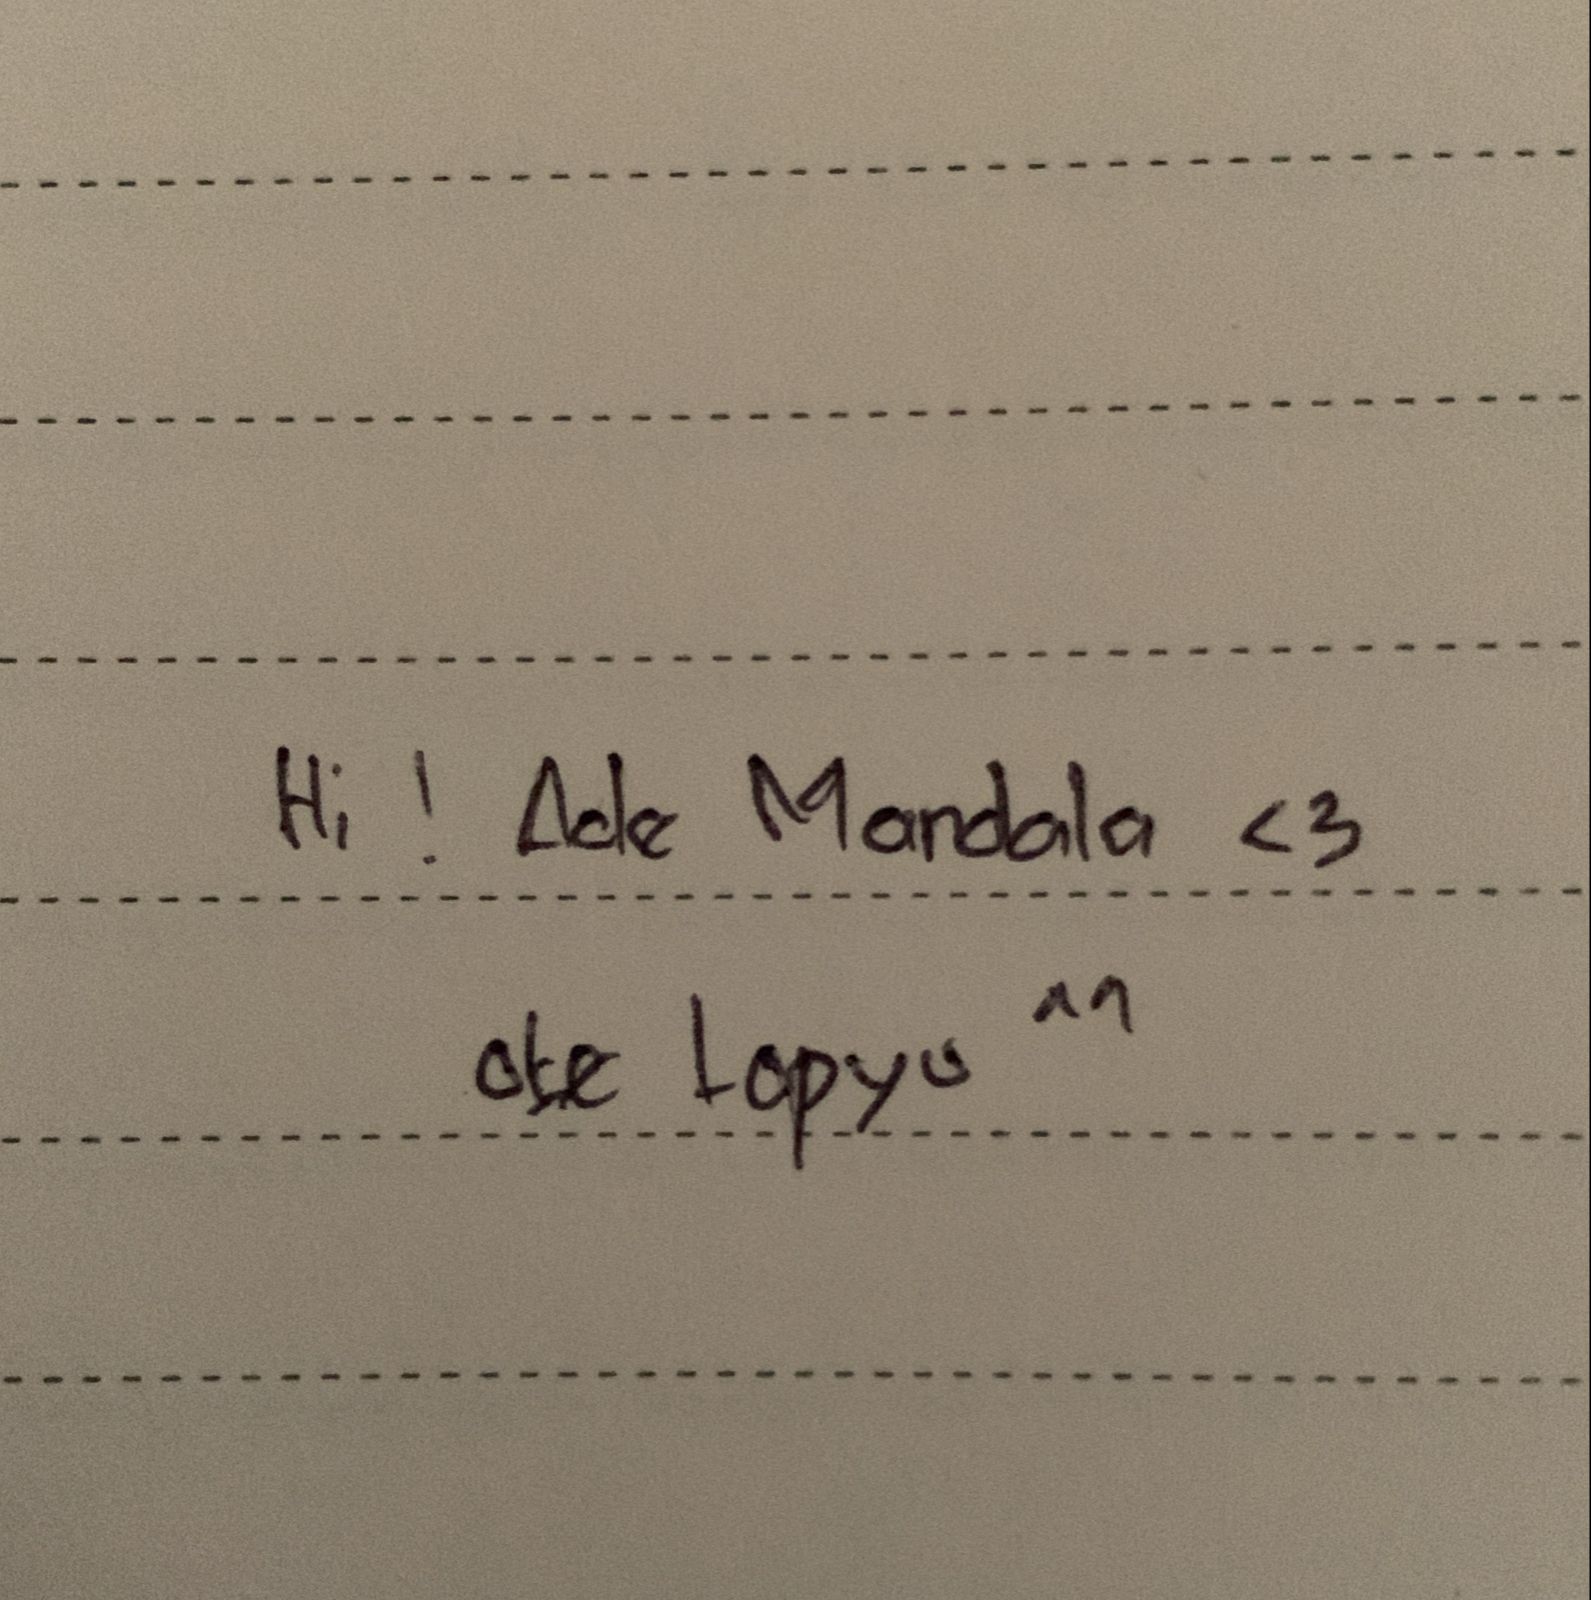 Hi ! Ade Mandala <3
oke Lopyu ^^